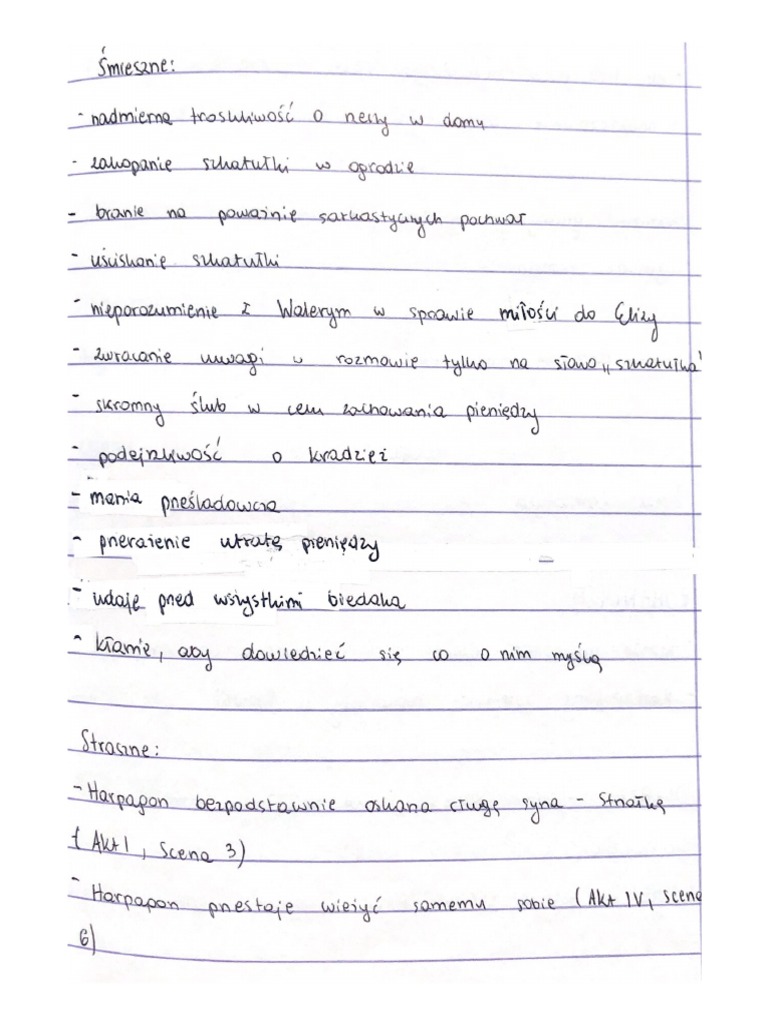 Śmieszne:
- nadmierna troskliwość o rzeczy w domu
- zakopanie szkatułki w ogrodzie
- branie na poważnie sarkastycznych pochwał
- uściskanie szkatułki
- nieporozumienie z Walerym w sprawie miłości do Elizy
- zwracanie uwagi w rozmowie tylko na słowo „szkatułka"
- skromny ślub w celu zachowania pieniędzy
- podejrzliwość o kradzież
- mania prześladowcza
- przerażenie utratą pieniędzy
- udaje przed wszystkimi biedaka
- kłamie, aby dowiedzieć się co o nim myślą
Straszne:
- Harpagon bezpodstawnie oskarża sługę syna - Strzałkę
(Akt I, Scena 3)
- Harpagon przestaje wierzyć samemu sobie (Akt IV, Scena
6)